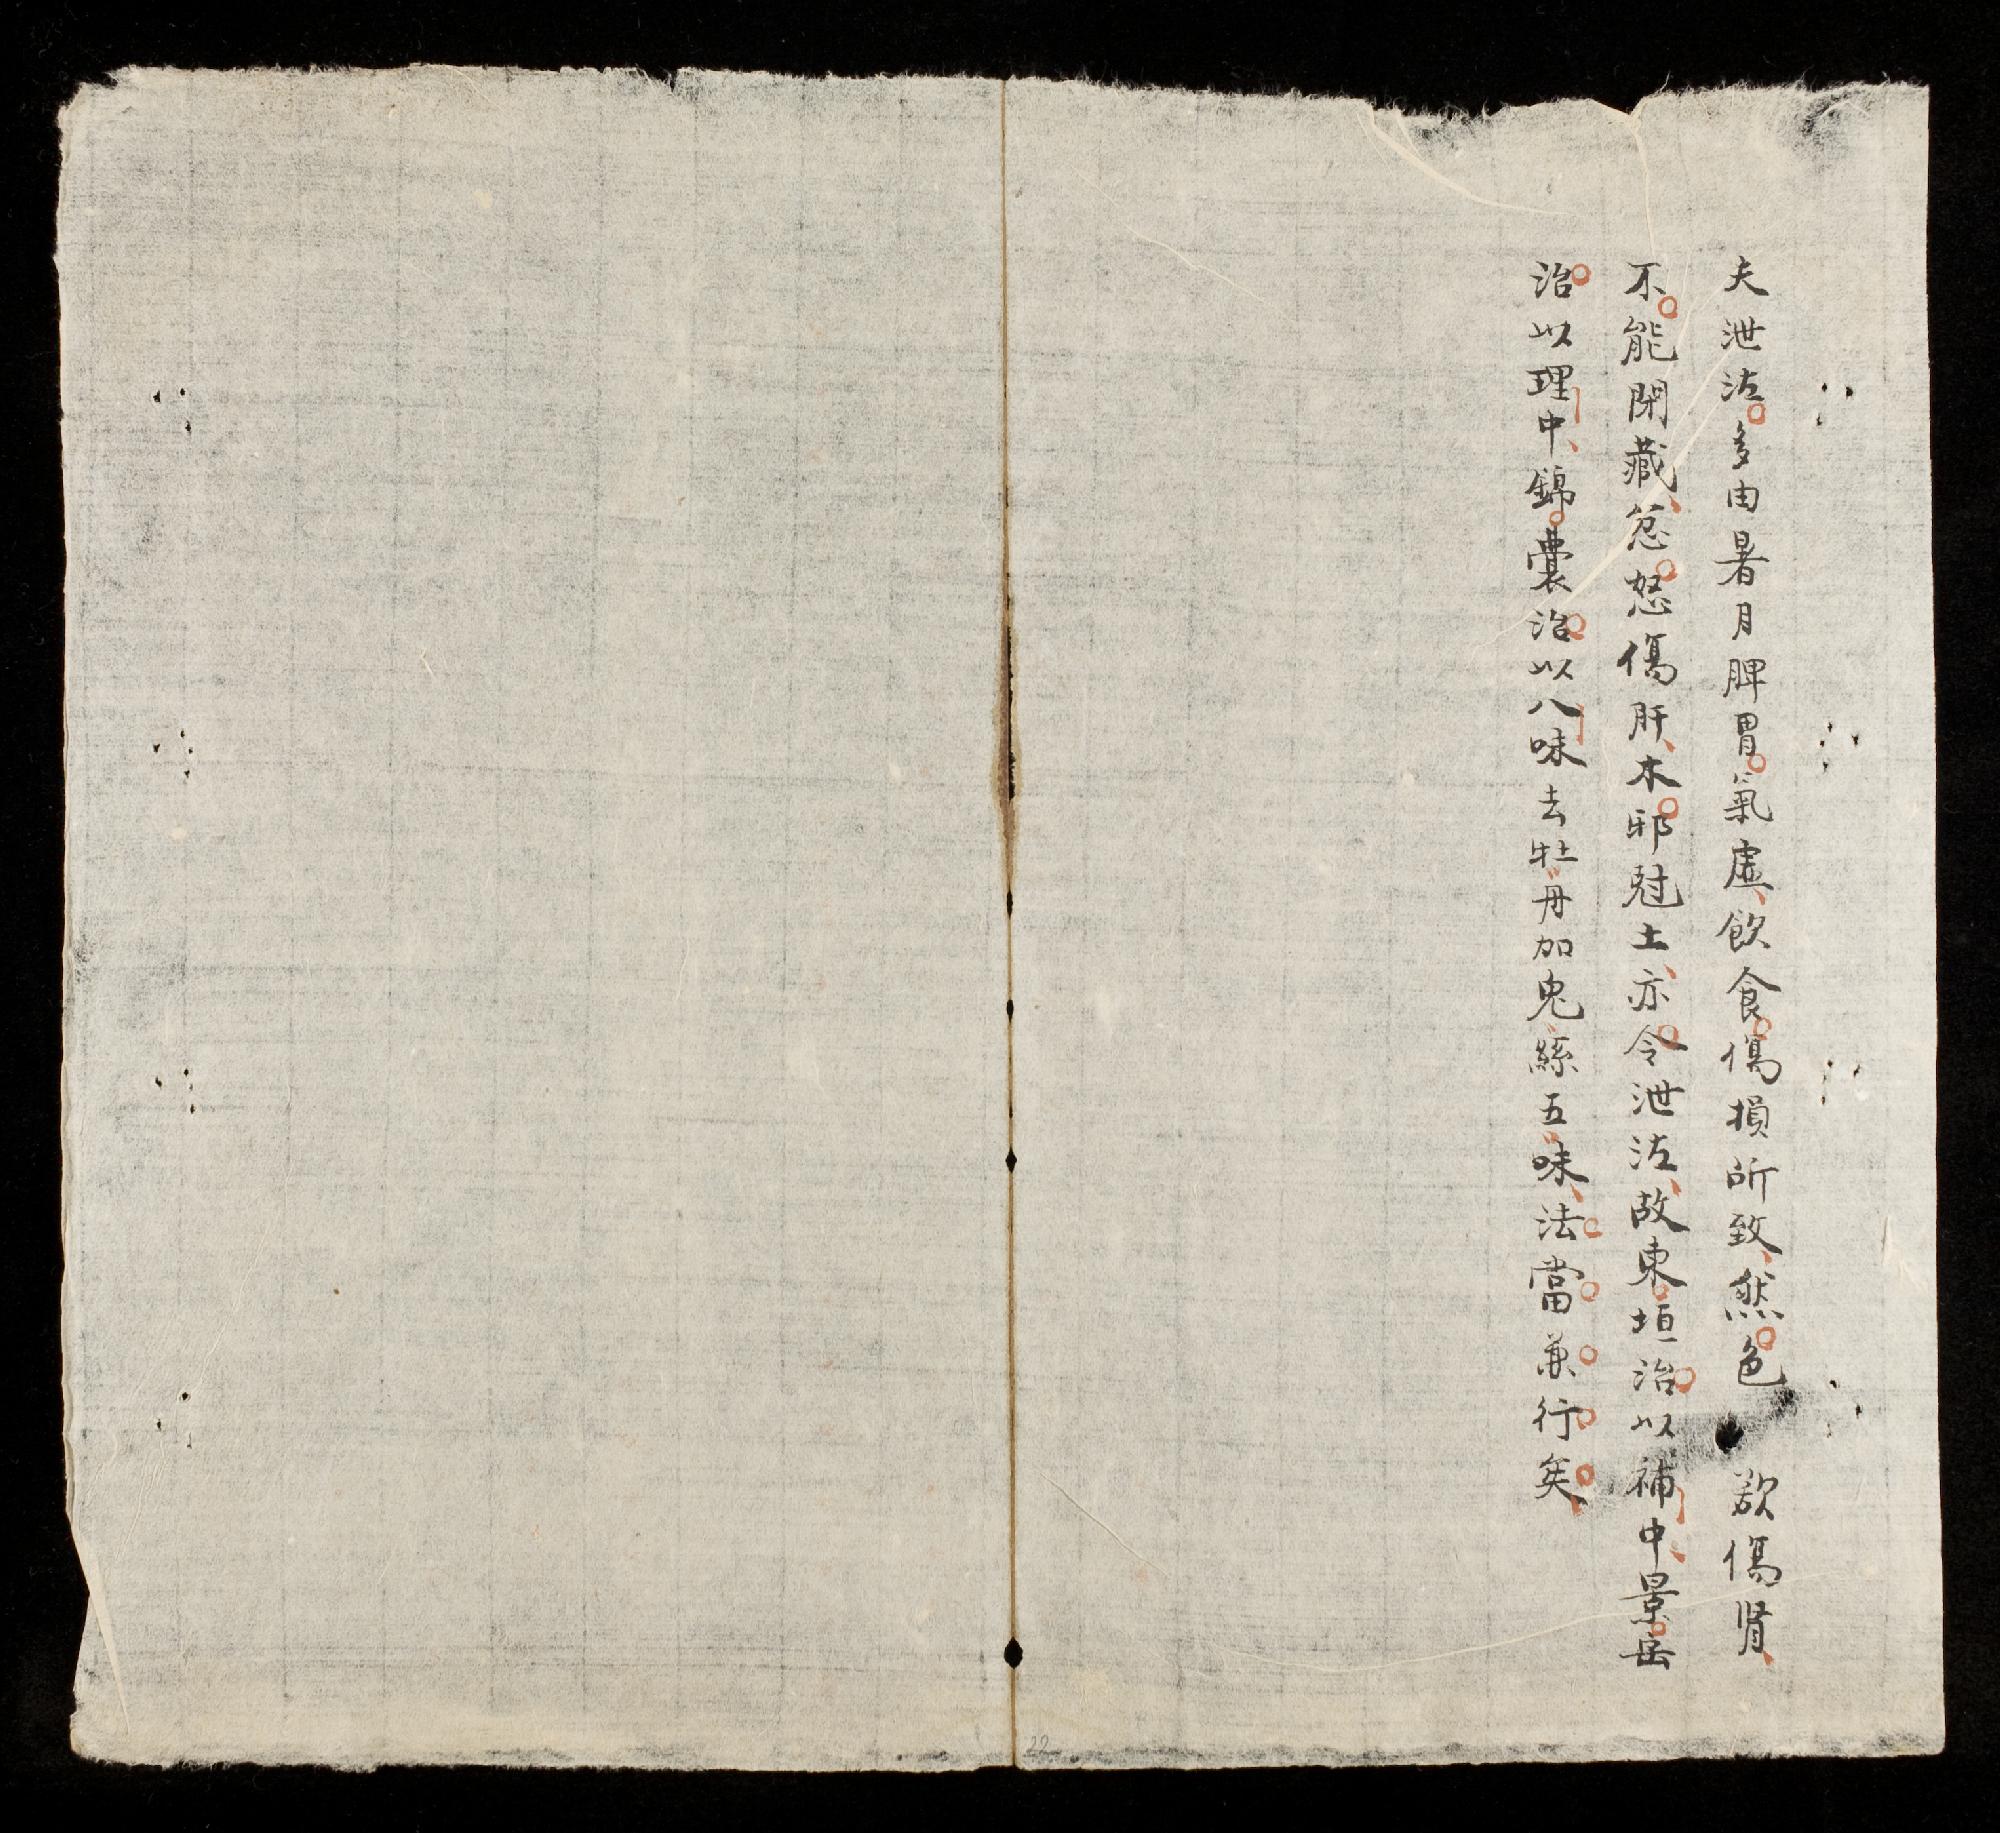 夫泄泻多由暑月脾胃氣虛飲食傷損所致然色慾傷肾
不能閉藏忿怒傷肝木邪尅土亦令泄泻故東垣治以補中景岳
治以理中錦囊治以八味去牡丹加兔絲五味法當兼行矣
22